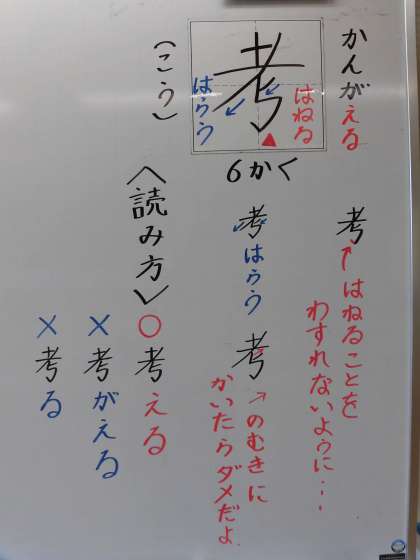 かんがえる
考
はねる
はらう
(こう)
6かく
考
↑はねることを
わすれないように・・・
考
はらう
考
↗のむきに
かいたらダメだよ
〈読み方〉
○考える
×考がえる
×考る